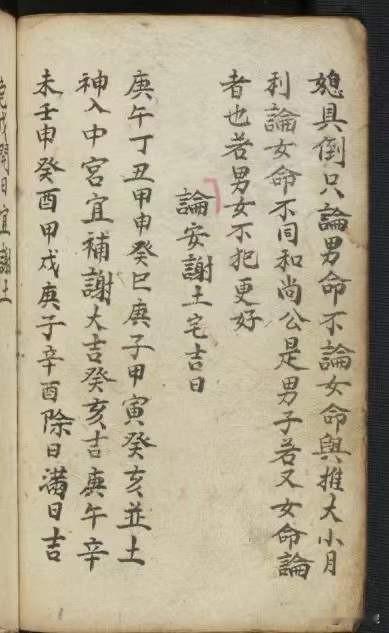 媳具倒只論男命不論女命與推大小月
利論女命不同和尚公是男子若又女命論
者也若男女不犯更好
論安謝土宅吉日
庚午丁丑甲申癸巳庚子甲寅癸亥並土
神入中宮宜補謝大吉癸亥吉庚午辛
未壬申癸酉甲戌庚子辛酉除日滿日吉
戊開日宜謝土